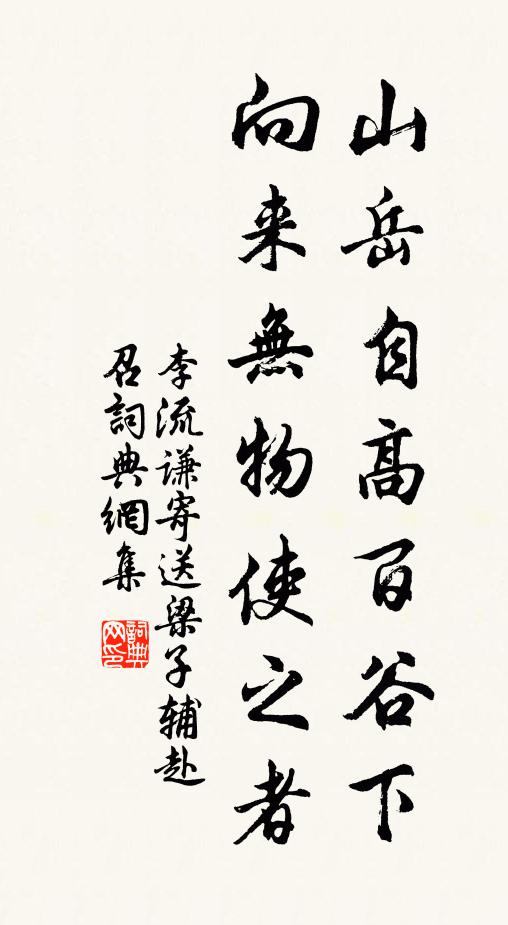 山岳自高百谷下
向来無物使之者
李流谦寄送梁子辅赴
召詞典網集
詞典
网印